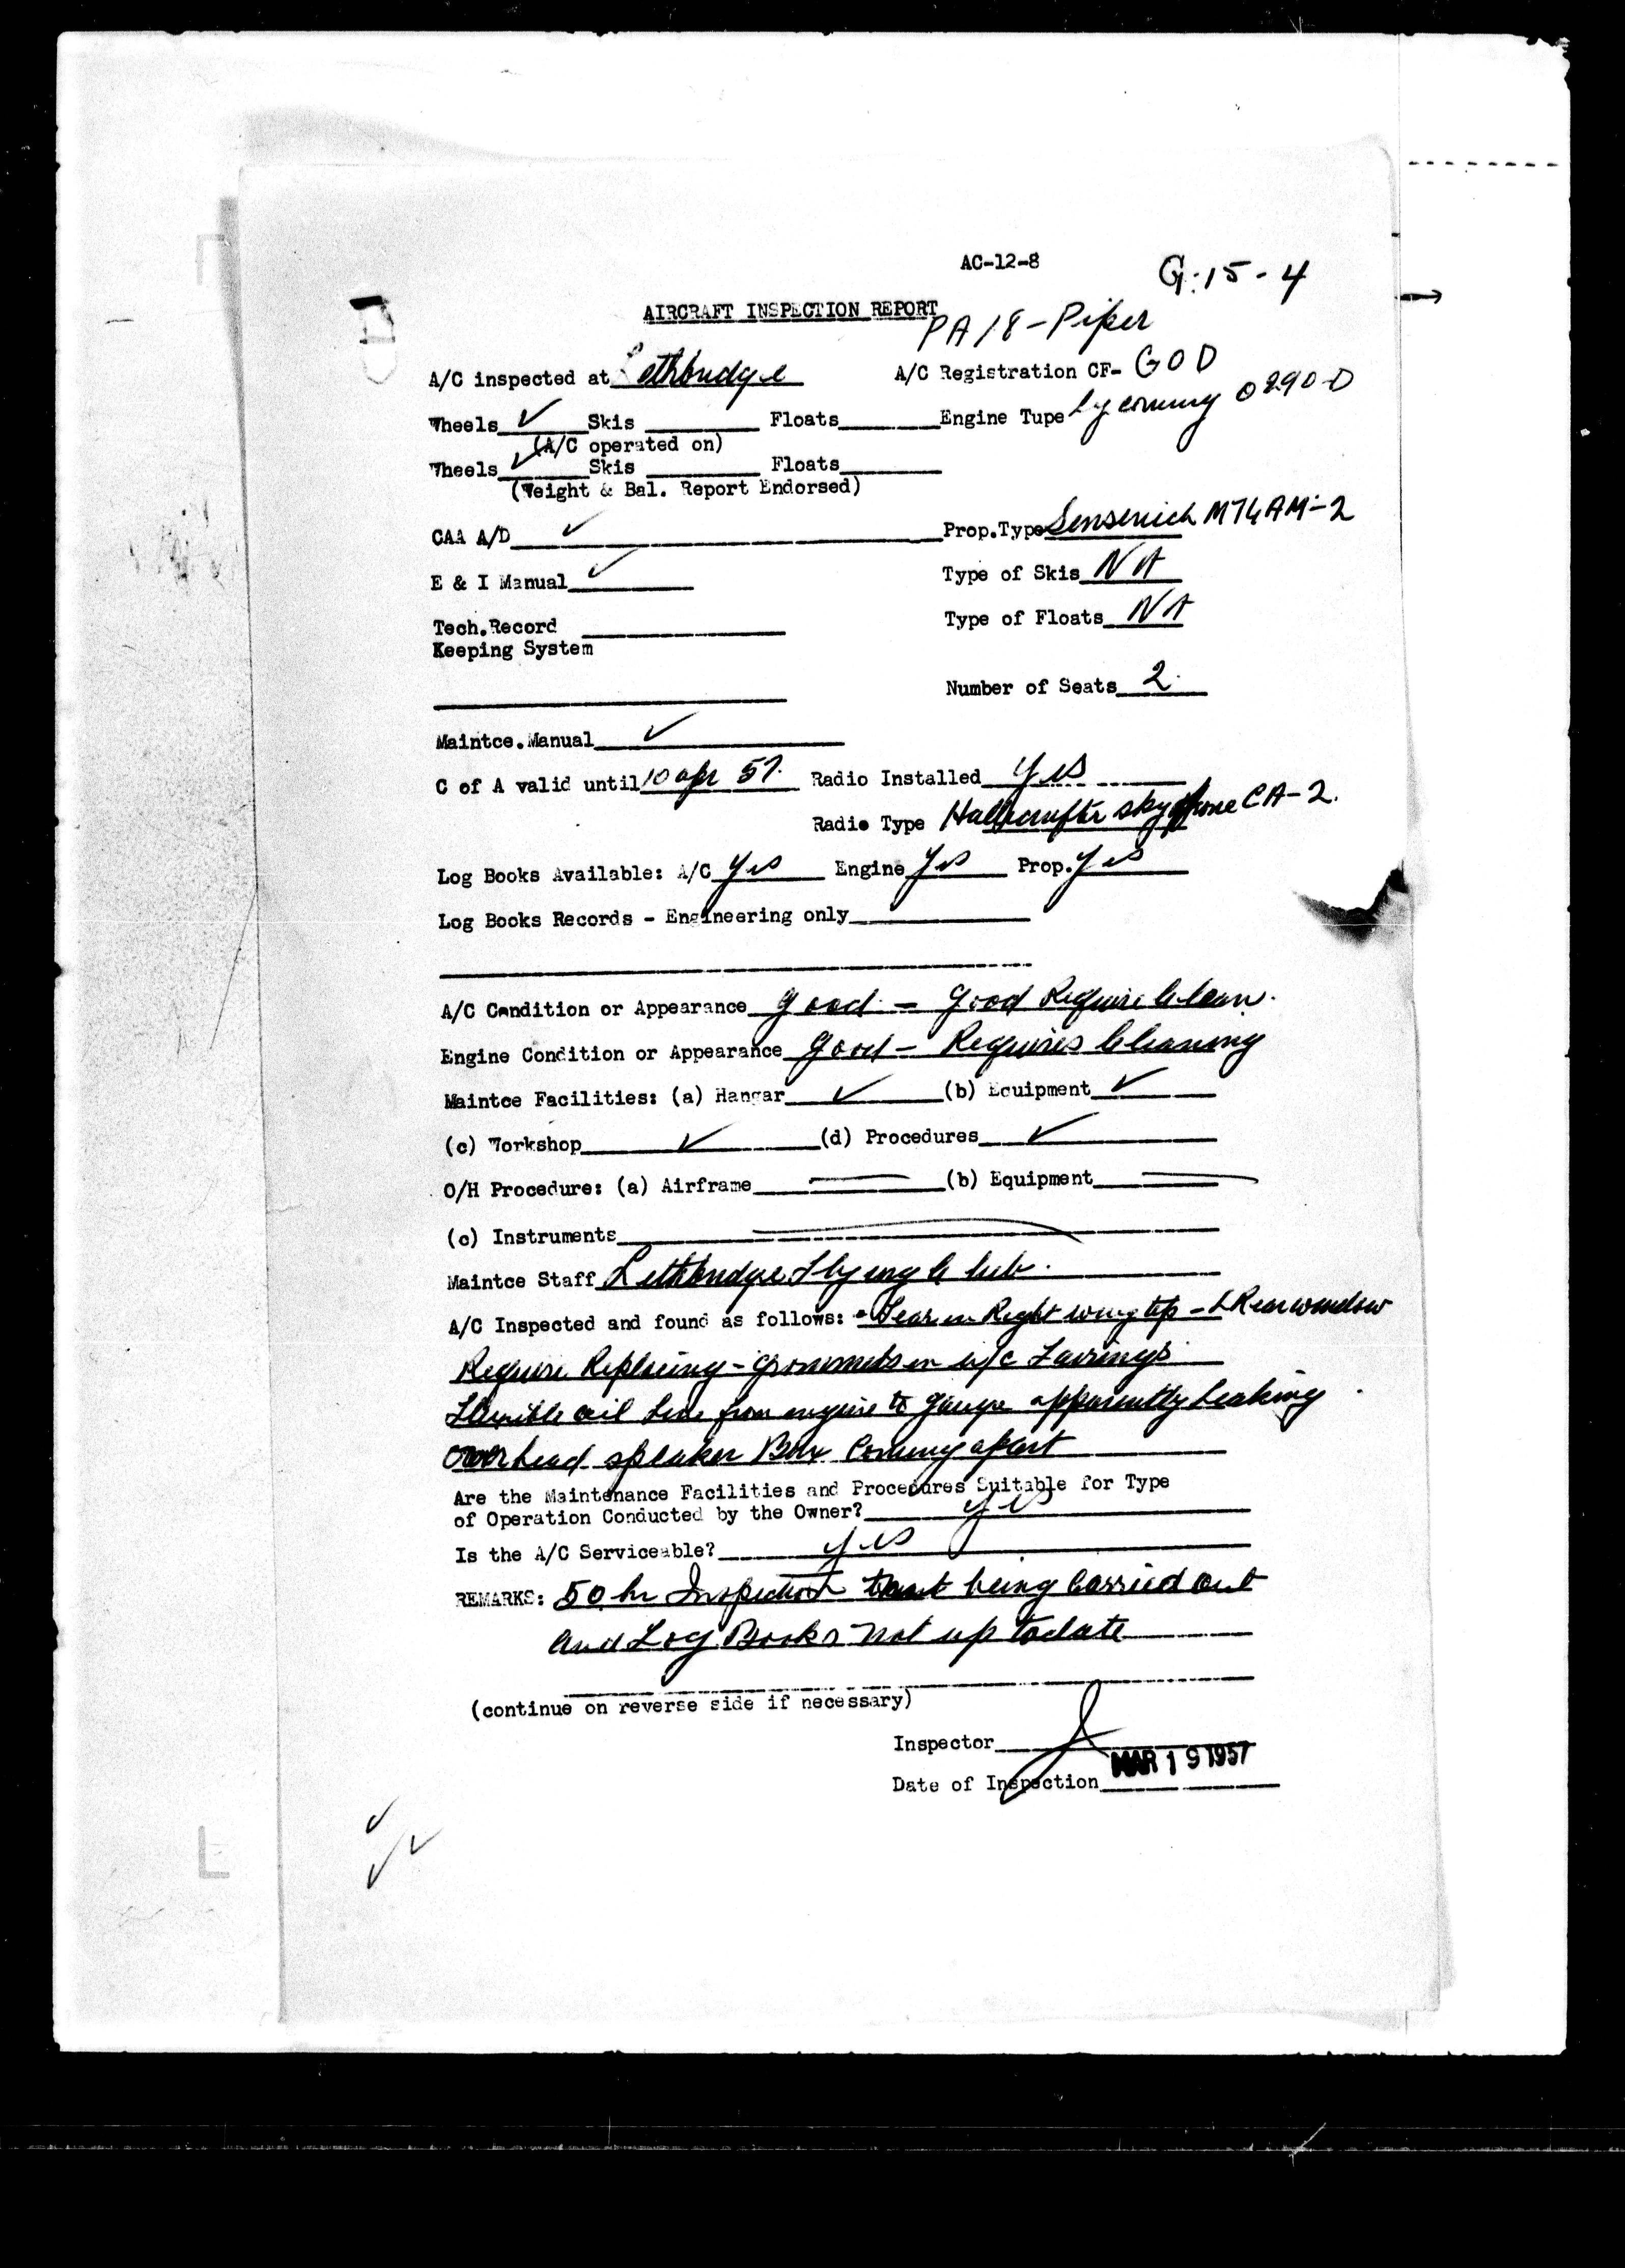 AC-12-8
G.15-4
AIRCRAFT INSPECTION REPORT
PA 18 - Piper
A/C inspected at Lethbridge A/C Registration CF- GOD
Wheels ✓ Skis Floats Engine Tupe Lycoming O290-D
(A/C operated on)
Wheels ✓ Skis Floats
(Weight & Bal. Report Endorsed)
CAA A/D ✓ Prop.Type Sensenich M74AM-2
E & I Manual ✓ Type of Skis NA
Tech.Record Type of Floats NA
Keeping System
Number of Seats 2.
Maintce.Manual ✓
C of A valid until 10 Apr 57. Radio Installed Yes
Radio Type Hallicrafter skyfone CA-2.
Log Books Available: A/C Yes Engine Yes Prop. Yes
Log Books Records - Engineering only
A/C Condition or Appearance Good - Good Require Clean.
Engine Condition or Appearance Good - Requires Cleaning
Maintce Facilities: (a) Hangar ✓ (b) Equipment ✓
(c) Workshop ✓ (d) Procedures ✓
O/H Procedure: (a) Airframe (b) Equipment
(c) Instruments
Maintce Staff Lethbridge Flying Club.
A/C Inspected and found as follows: - Tear in Right wing tip - L Rear window
Require Replacing - grommets in u/c Fairings
Flexible oil line from engine to gauge apparently leaking
overhead speaker Box Coming apart
Are the Maintenance Facilities and Procedures Suitable for Type
of Operation Conducted by the Owner? Yes
Is the A/C Serviceable? Yes
REMARKS: 50 hr Inspection being Carried out
and Log Books not up to date
(continue on reverse side if necessary)
Inspector
Date of Inspection MAR 19 1957